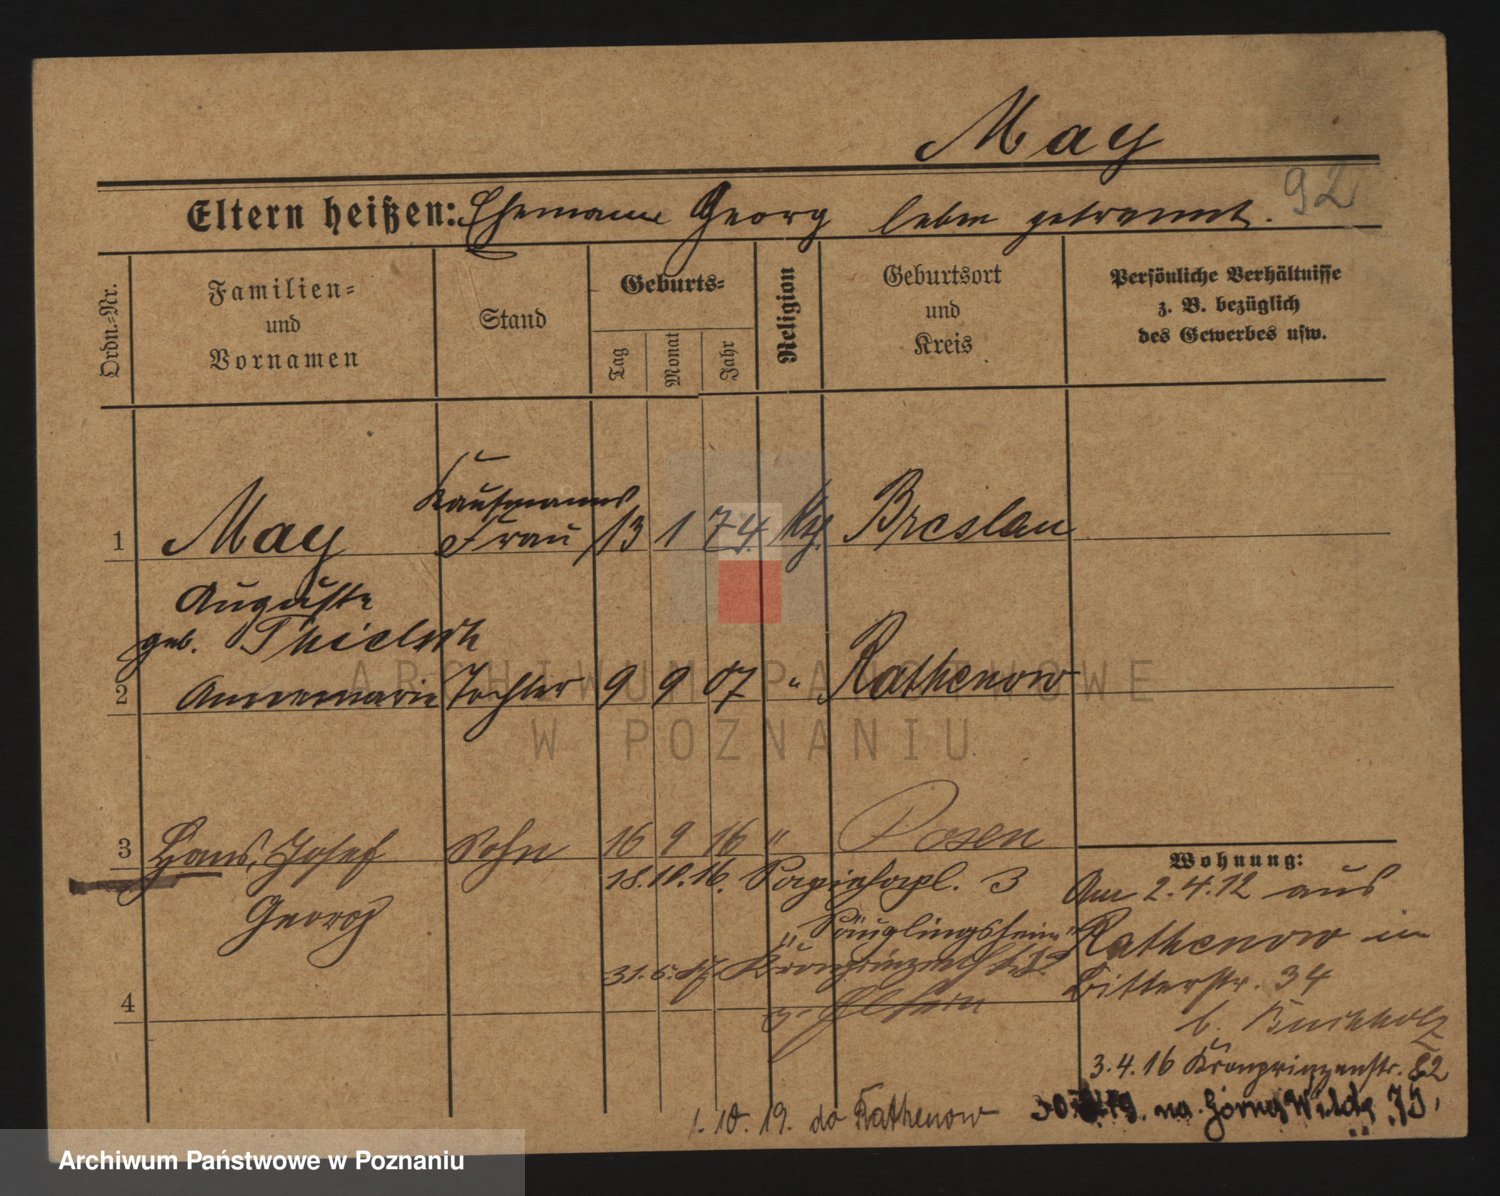 May
92
Eltern heißen: Ehemann Georg leben getrennt.
Ordn.-Nr.
Familien-
und
Vornamen
Stand
Geburts-
Tag
Monat
Jahr
Religion
Geburtsort
und
Kreis
Persönliche Verhältnisse
z. B. bezüglich
des Gewerbes usw.
Kaufmanns
1 May Frau 13 1 74 Breslau
Auguste
geb.
2 Annemarie Tochter 9 9 07 " Rathenow
3 Hans, Josef Sohn 16 9 16 " Posen
Georg
Wohnung:
18.10.16. 3
"Säuglingsheim"
31.5.17.
z. Eltern
4
Am 2.4.12 aus
Rathenow in
Ritterstr. 34
b.
3.4.16 Kronprinzenstr. 82
1.10.19. do Rathenow
na Górna Wilda
ARCHIWUM PAŃSTWOWE
W POZNANIU
Archiwum Państwowe w Poznaniu